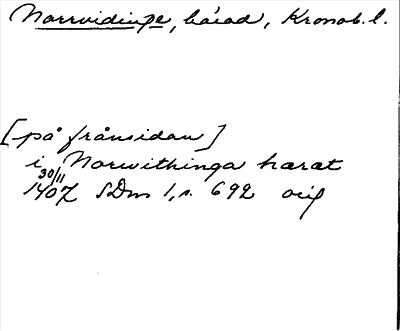 Norrvidinge, härad, Kronob. l.
[på frånsidan]
i Norwithinga harat
30/11
1407 SDns 1, s. 692 orig